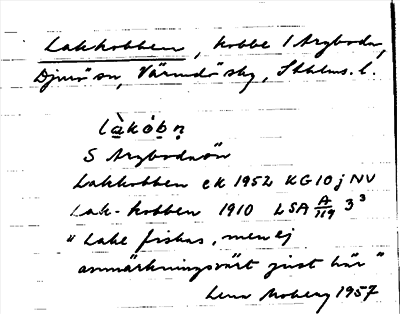 Lakkobben, kobbe i Axyboda,
Djurö sn, Värmdö skg, Sthlms. l.
làkóbṇ
S Axybodaön
Lakkobben ek 1952 KG 10 j NV
Lak-kobben 1910 LSA A/119 3³
"Lake fiskas, men ej
anmärkningsvärt just här"
Lena Moberg 1957